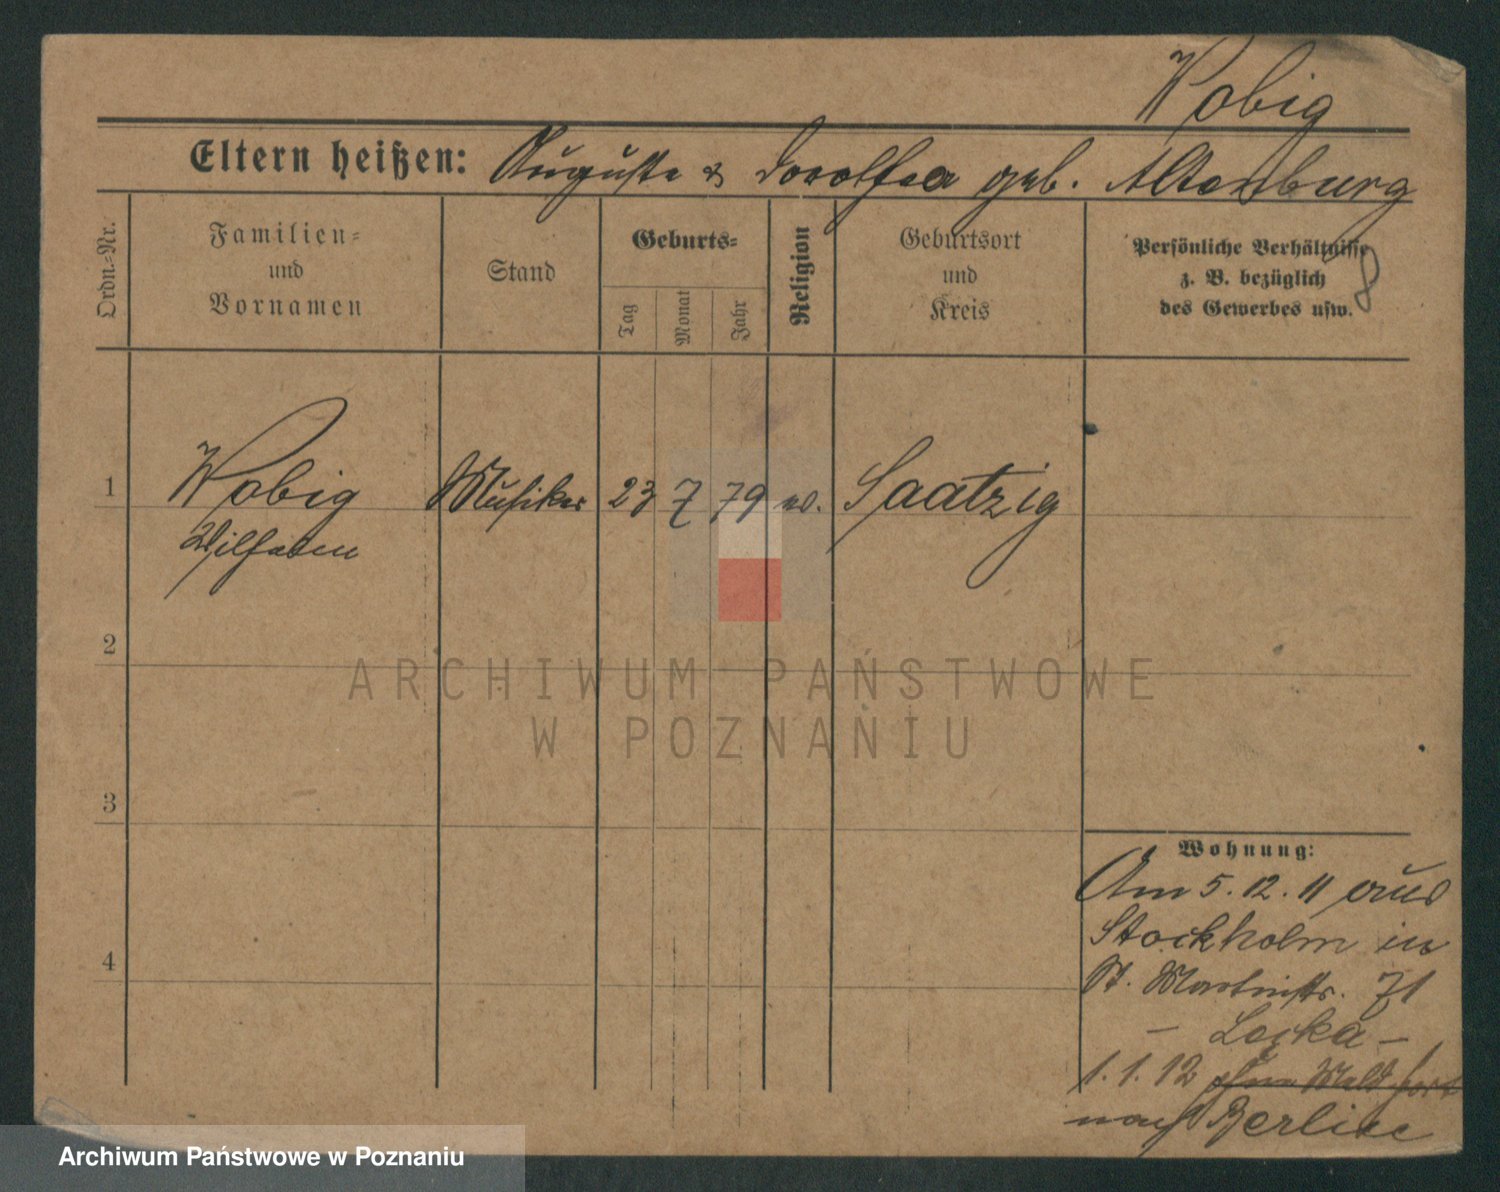 Wobig
Eltern heißen: Auguste & Dorothea geb. Altenburg
Ordn.-Nr.
Familien-
und
Vornamen
Stand
Geburts-
Tag
Monat
Jahr
Religion
Geburtsort
und
Kreis
Persönliche Verhältnisse
z. B. bezüglich
des Gewerbes usw.
8
1
Wobig
Musiker 23 7 79 ev. Saatzig
Wilhelm
2
ARCHIWUM PAŃSTWOWE
W POZNANIU
3
Wohnung:
Am 5.12.11 aus
Stockholm in
4
St. Martinstr. 71
- Locka -
1.1.12 ohne Meld. fort
nach Berlin
Archiwum Państwowe w Poznaniu